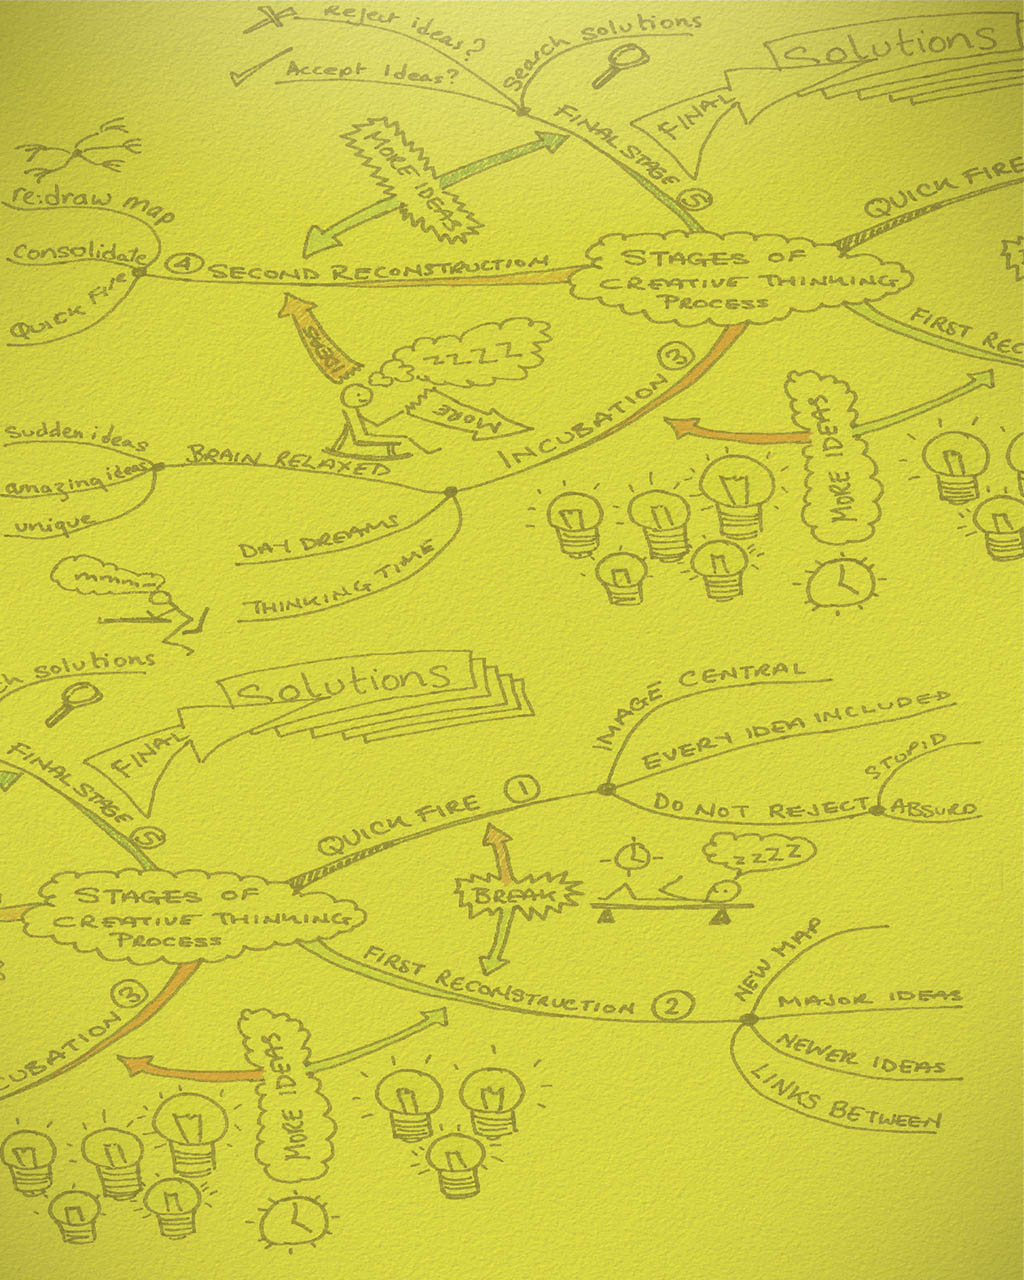 Reject ideas?
Accept Ideas?
Search solutions
Solutions
FINAL
FINAL STAGE 5
MORE IDEAS
re:draw map
Consolidate
Quick Fire
4 SECOND RECONSTRUCTION
STAGES OF
CREATIVE THINKING
PROCESS
QUICK FIRE
FIRST REC
IDEAS
ZZZZ
MORE
INCUBATION 3
Sudden ideas
amazing ideas
unique
BRAIN RELAXED
DAY DREAMS
THINKING TIME
MORE IDEAS
mmm
ch solutions
Solutions
FINAL
FINAL STAGE 5
QUICK FIRE 1
IMAGE CENTRAL
EVERY IDEA INCLUDED
DO NOT REJECT
STUPID
ABSURD
BREAK
ZZZZ
STAGES OF
CREATIVE THINKING
PROCESS
FIRST RECONSTRUCTION 2
NEW MAP
MAJOR IDEAS
NEWER IDEAS
LINKS BETWEEN
CUBATION 3
MORE IDEAS